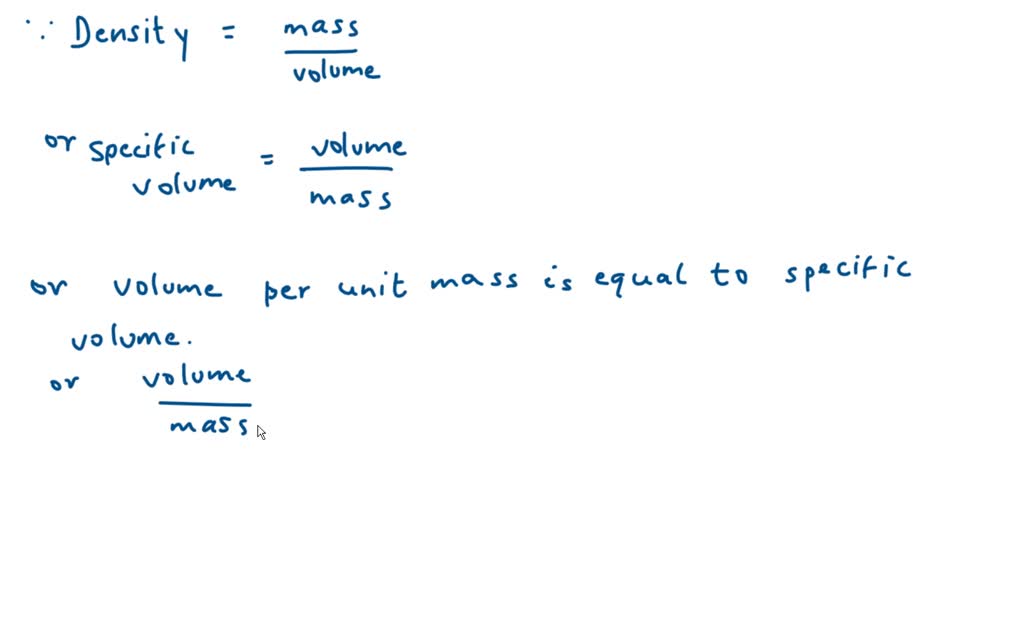 ∵ Density = mass
volume
or specific = volume
volume mass
or volume per unit mass is equal to specific
volume.
or volume
mass